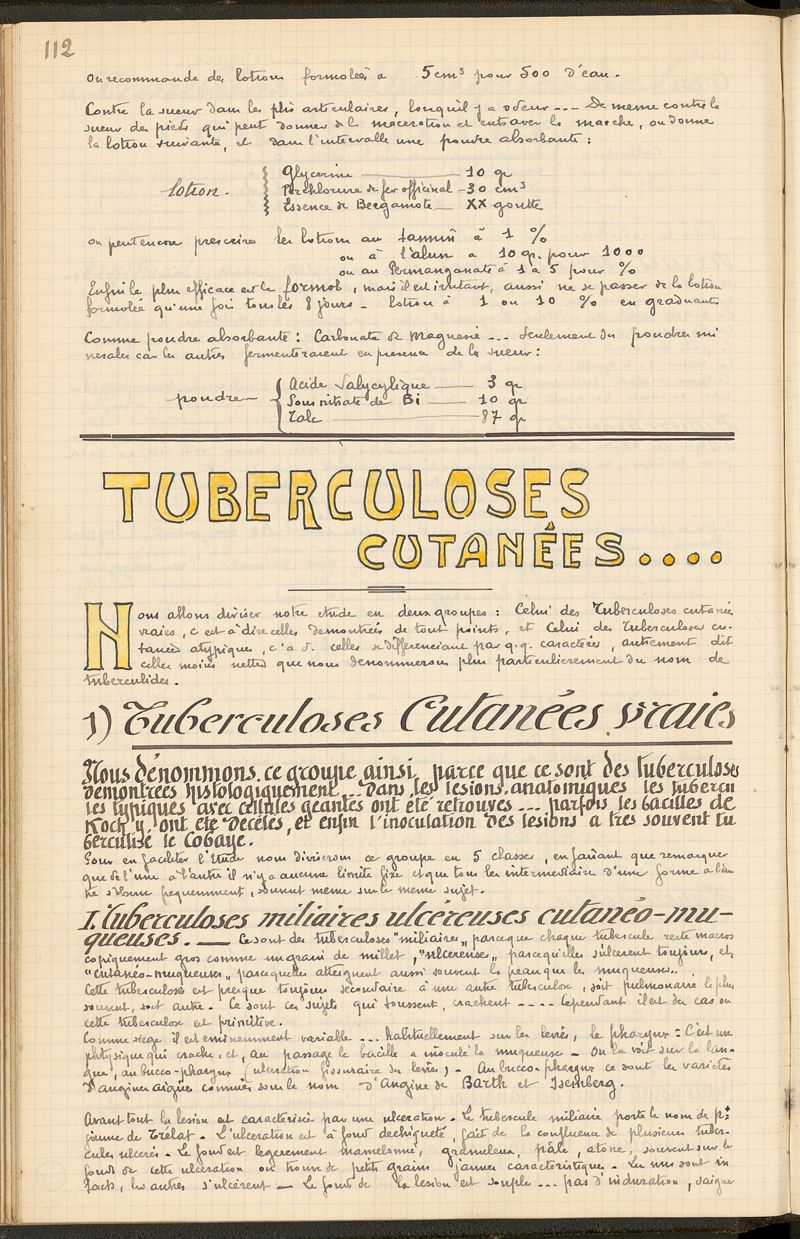 112
On recommande des lotions formolées à 5cm³ pour 500 d'eau.
Contre la sueur dans les plis articulaires, lorsqu'il y a odeur --- De meme contre la
sueur des pieds qui peut donner de la maceration et entraver la marche, on donne
la lotion suivante, et dans l'intervalle une poudre absorbante :
Glycerine —— 10 gr
lotion. Perchlorure de fer officinal - 30 cm³
Essence de Bergamote — XX goutte
on peut encore prescrire les lotions au tannin à 1 %
ou à l'alun à 10 gr. pour 1000
ou au Permanganate à 1 à 5 pour %
Enfin le plus efficace est le formol, mais il est irritant, aussi ne se passer de la lotion
formolée qu'une fois tous les 8 jours - lotion à 1 ou 10 % en graduant
Comme poudre absorbante : Carbonate de Magnesie ... seulement des poudres mi
nerales car les autres fermenteraient en presence de la sueur :
Acide Salycylique —— 3 gr
poudre — Sous nitrate de Bi —— 10 gr
Talc —— 87 gr
TUBERCULOSES
CUTANÉES....
Nous allons diviser notre etude en deux groupes : Celui des Tuberculoses cutanée
vraies, c est à dire celles demontrées de tout points, et Celui des Tuberculoses cu-
tanées atypiques, c'a d. celles se differenciant par q.q. caractères, autrement dit
celles moins nettes que nous denommerons plus particulierement du nom de
tuberculides.
1) Tuberculoses Cutanées vraies
Nous dénommons ce groupe ainsi, parce que ce sont des tuberculoses
demontrées histologiquement... Dans les lesions anatomiques les tubercu
les typiques avec cellules geantes ont été retrouves... parfois les bacilles de
Koch y ont été decelés, et enfin l'inoculation des lesions a tres souvent tu
berculisé le Cobaye.
Pour en faciliter l'étude nous diviserons ce groupe en 5 classes, en faisant que remarquer
que de l'une à l'autre il n'y a aucune limite fixe et que tous les intermediaires d'une forme a l'au
tre s'observe frequemment, souvent meme sur le meme sujet.
I. Tuberculoses miliaires ulcéreuses cutanéo-mu-
queuses. — Ce sont des tuberculoses "miliaires" parceque chaque tubercule reste macros
copiquement gros comme un grain de millet, "ulcereuses" parcequ'elles s'ulcerent toujours, et
"cutanéo-muqueuses" parcequ'elles atteignent aussi souvent la peau que les muqueuses..
Cette tuberculose est presque toujours secondaire à une autre tuberculose, soit pulmonaire le plus
souvent, soit autre. Ce sont ces sujets qui toussent, crachent ---- Cependant il est des cas ou
cette tuberculose est primitive.
Comme siege il est eminemment variable ... habituellement sur les levres, le pharynx : C'est un
phtysique qui crache, et, au passage le bacille a inoculé la muqueuse - On la voit sur la lan-
gue, au bucco-pharynx (ulceration fissuraire des levres) - Au bucco-pharynx ce sont les varietés
d'angines aigües connues sous le nom d'Angine de Barth et Isemberg.
Avant tout la lesion est caracterisée par une ulceration - Le tubercule miliaire porte le nom de pt
jaune de Trélat - L'ulceration est à fond dechiqueté, fait de la confluence de plusieurs tuber-
cules ulcerés - Le fond est legerement mamelonné, granuleux, pâle, atone, souvent sur le
fond de cette ulceration on trouve de petits grains jaunes caracteristiques - Les uns sont in
tacts, les autres s'ulcèrent — Le fond de la lesion est souple ... pas d'induration, saigne